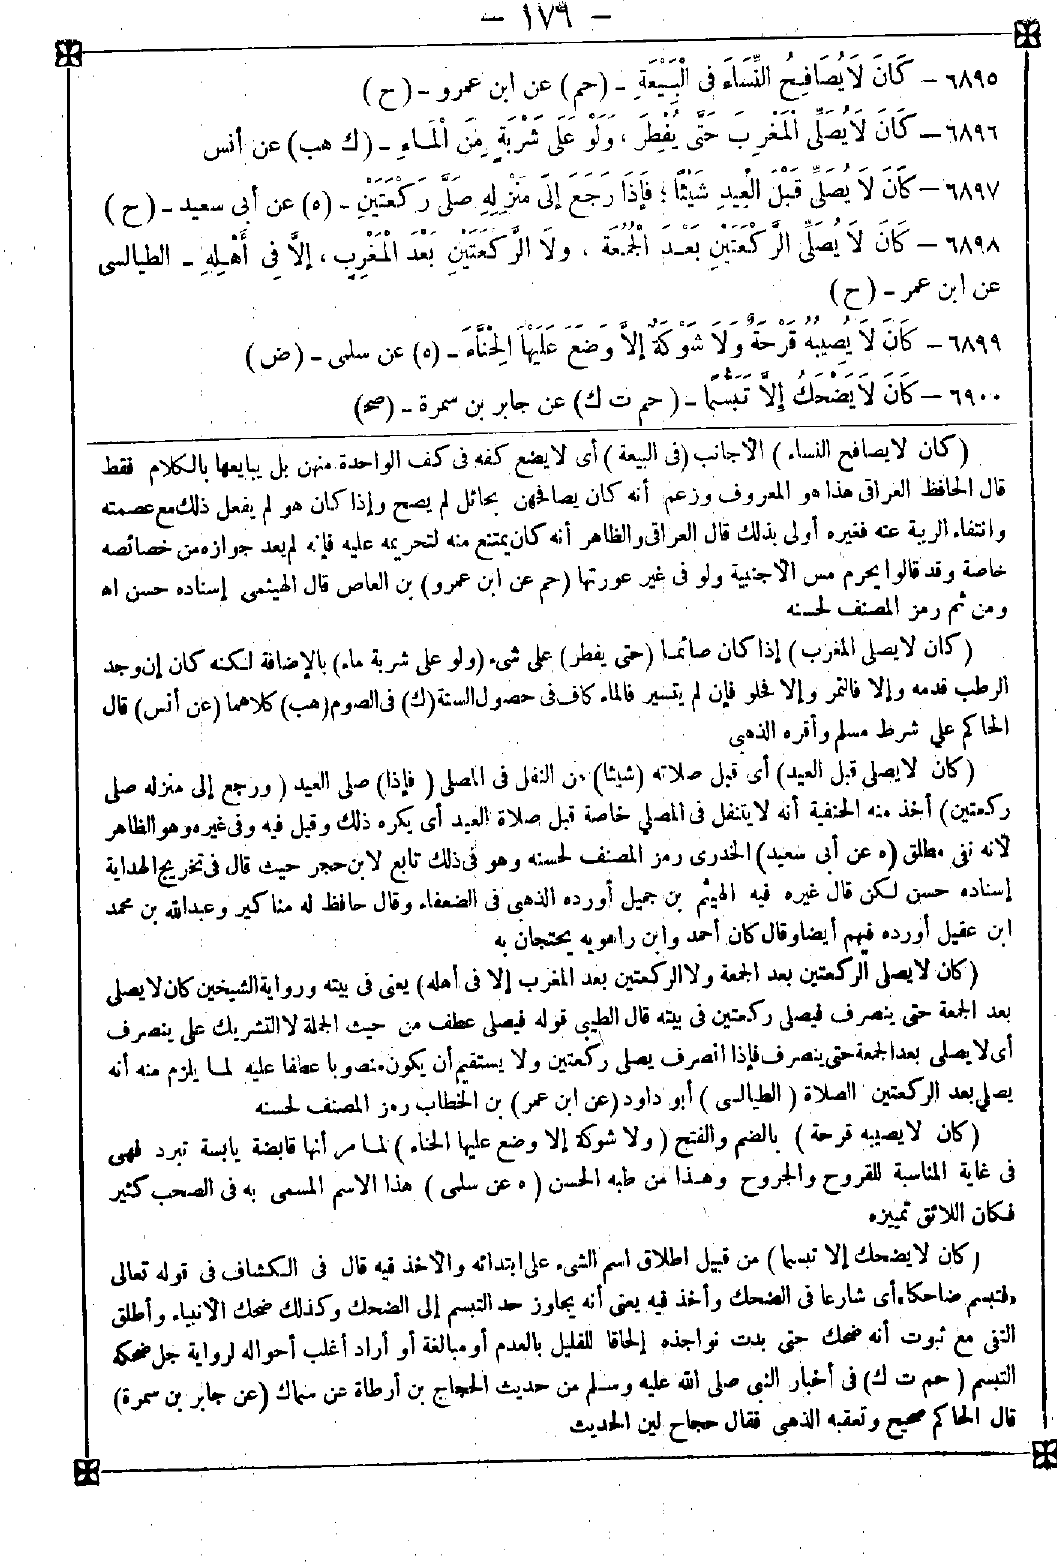 – ١٧٩ –
٦٨٩٥ – كَانَ لَا يُصَافِحُ النِّسَاءَ فِى الْبَيْعَةِ – (حم) عن ابن عمرو – (ح)
٦٨٩٦ – كَانَ لَا يُصَلِّى الْمَغْرِبَ حَتَّى يُفْطِرَ، وَلَوْ عَلَى شَرْبَةٍ مِنَ الْمَاءِ – (ك هب) عن أنس
٦٨٩٧ – كَانَ لَا يُصَلِّى قَبْلَ الْعِيدِ شَيْئًا؛ فَإِذَا رَجَعَ إِلَى مَنْزِلِهِ صَلَّى رَكْعَتَيْنِ – (ه) عن أبى سعيد – (ح)
٦٨٩٨ – كَانَ لَا يُصَلِّى الرَّكْعَتَيْنِ بَعْدَ الْجُمُعَةِ، ولَا الرَّكْعَتَيْنِ بَعْدَ الْمَغْرِبِ، إلَّا فِى أَهْلِهِ – الطيالسى
عن ابن عمر – (ح)
٦٨٩٩ – كَانَ لَا يُصِيبُهُ قَرْحَةٌ وَلَا شَوْكَةٌ إلَّا وَضَعَ عَلَيْهَا الْحِنَّاءَ – (ه) عن سلمى – (ض)
٦٩٠٠ – كَانَ لَا يَضْحَكُ إِلَّا تَبَسُّمًا – (حم ت ك) عن جابر بن سمرة – (صح)
(كان لا يصافح النساء) الأجانب (فى البيعة) أى لا يضع كفه فى كف الواحدة منهن بل يبايعها بالكلام فقط
قال الحافظ العراقى هذا هو المعروف وزعم أنه كان يصافحهن بحائل لم يصح وإذا كان هو لم يفعل ذلك مع عصمته
وانتفاء الريبة عنه فغيره أولى بذلك قال العراقى والظاهر أنه كان يمتنع منه لتحريمه عليه فإنه لم يعد جوازه من خصائصه
خاصة وقد قالوا يحرم مس الأجنبية ولو فى غير عورتها (حم عن ابن عمرو) بن العاص قال الهيثمى إسناده حسن اه
ومن ثم رمز المصنف لحسنه
(كان لا يصلى المغرب) إذا كان صائما (حتى يفطر) على شىء (ولو على شربة ماء) بالإضافة لكنه كان إن وجد
الرطب قدمه وإلا فالتمر وإلا فحلو فإن لم يتيسر فالماء كاف فى حصول السنة (ك) فى الصوم (هب) كلاهما (عن أنس) قال
الحاكم على شرط مسلم وأقره الذهبى
(كان لا يصلى قبل العيد) أى قبل صلاته (شيئا) من النفل فى المصلى (فإذا) صلى العيد (ورجع إلى منزله صلى
ركعتين) أخذ منه الحنفية أنه لا يتنفل فى المصلى خاصة قبل صلاة العيد أى يكره ذلك وقيل فيه وفى غيره وهو الظاهر
لأنه نفى مطلق (ه عن أبى سعيد) الخدرى رمز المصنف لحسنه وهو فى ذلك تابع لابن حجر حيث قال فى تخريج الهداية
إسناده حسن لكن قال غيره فيه الهيثم بن جميل أورده الذهبى فى الضعفاء وقال حافظ له مناكير وعبدالله بن محمد
ابن عقيل أورده فيهم أيضا وقال كان أحمد وابن راهويه يحتجان به
(كان لا يصلى الركعتين بعد الجمعة ولا الركعتين بعد المغرب إلا فى أهله) يعنى فى بيته ورواية الشيخين كان لا يصلى
بعد الجمعة حتى ينصرف فيصلى ركعتين فى بيته قال الطيبى قوله فيصلى عطف من حيث الجملة لا التشريك على ينصرف
أى لا يصلى بعد الجمعة حتى ينصرف فإذا انصرف يصلى ركعتين ولا يستقيم أن يكون منصوبا عطفا عليه لما يلزم منه أنه
يصلى بعد الركعتين الصلاة (الطيالسى) أبو داود (عن ابن عمر) بن الخطاب رمز المصنف لحسنه
(كان لا يصيبه قرحة) بالضم والفتح (ولا شوكة إلا وضع عليها الحناء) لما مر أنها قابضة يابسة تبرد فهى
فى غاية المناسبة للقروح والجروح وهذا من طبه الحسن (ه عن سلمى) هذا الاسم المسمى به فى الصحب كثير
فكان اللائق تمييزه
(كان لا يضحك إلا تبسما) من قبيل اطلاق اسم الشىء على ابتدائه والأخذ فيه قال فى الكشاف فى قوله تعالى
«فتبسم ضاحكا» أى شارعا فى الضحك وأخذ فيه يعنى أنه يجاوز حد التبسم إلى الضحك وكذلك ضحك الأنبياء وأطلق
النفى مع ثبوت أنه ضحك حتى بدت نواجذه إلحاقا للقليل بالعدم أو مبالغة أو أراد أغلب أحواله لرواية جل ضحكه
التبسم (حم ت ك) فى أخبار النبى صلى الله عليه وسلم من حديث الحجاج بن أرطاة عن سماك (عن جابر بن سمرة)
قال الحاكم صحيح وتعقبه الذهبى فقال حجاج لين الحديث